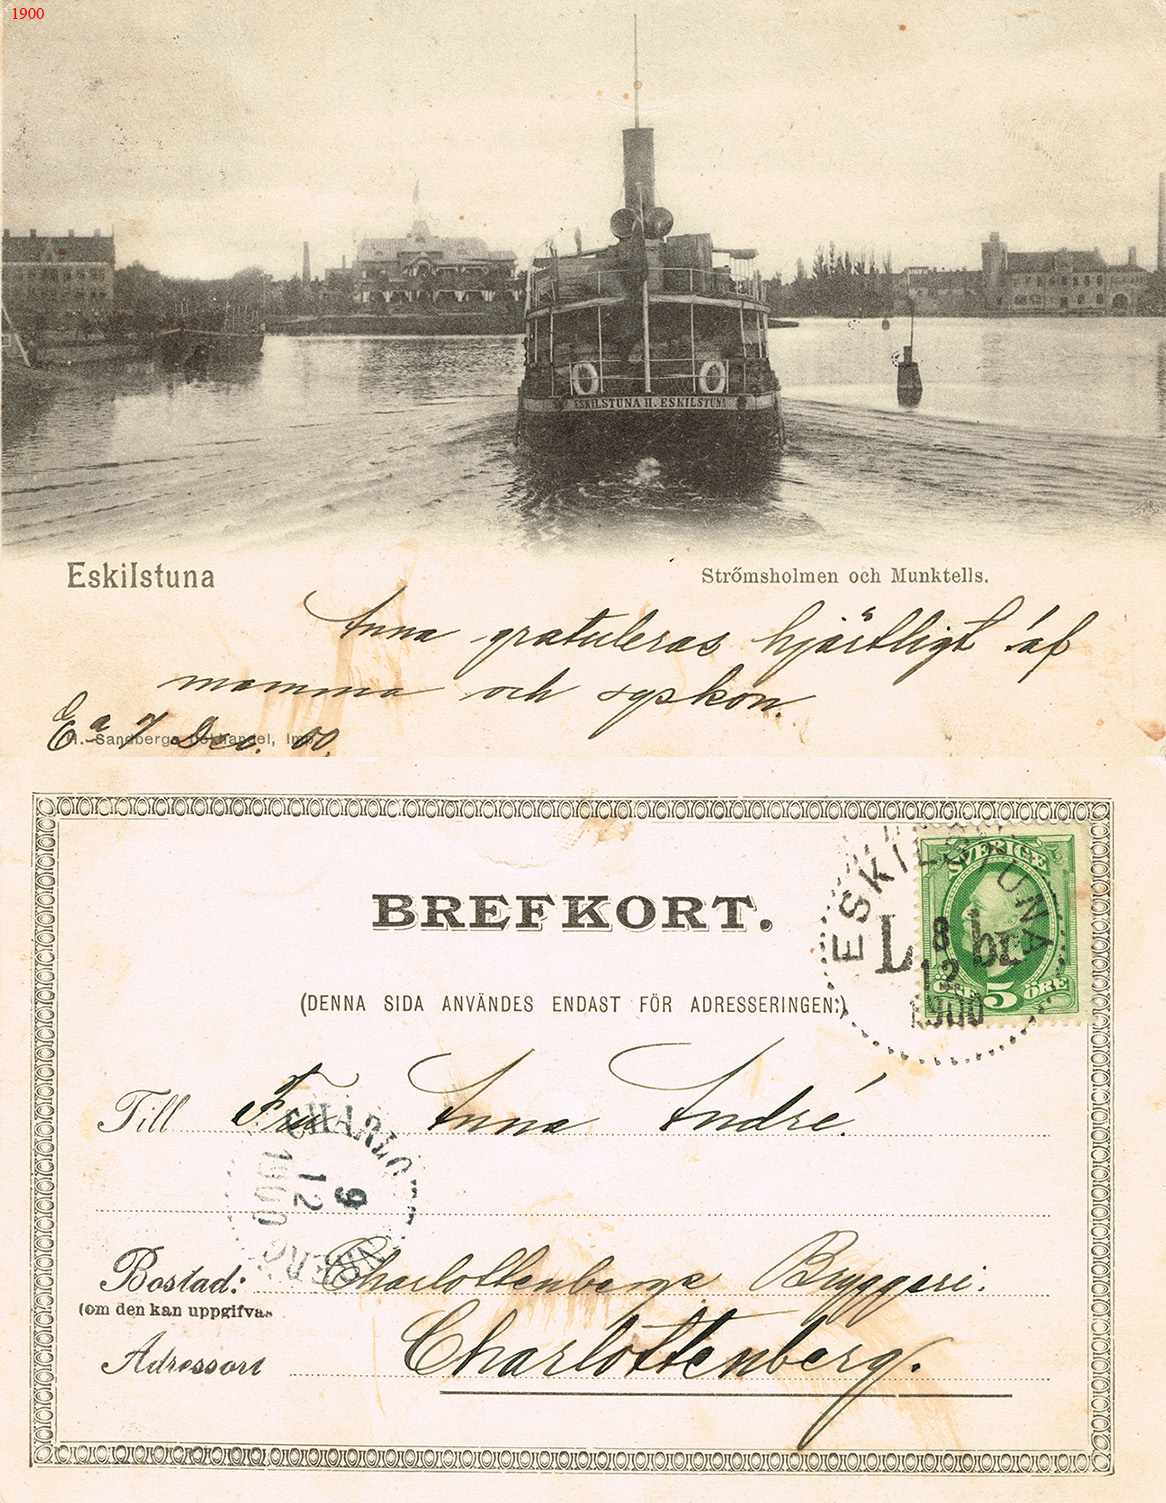 1900
ESKILSTUNA II. ESKILSTUNA
Eskilstuna
Strömsholmen och Munktells.
Anna gratuleras hjärtligt af
mamma och syskon.
E-a 7 Dec. 00.
Sandbergs Bokhandel, Imp.
BREFKORT.
ESKILSTUNA
L br
8
12
1900
SVERIGE
ÖRE 5 ÖRE
(DENNA SIDA ANVÄNDES ENDAST FÖR ADRESSERINGEN:)
Till Fru Anna André.
CHARLOTTENBERG
9
12
1900
Bostad: Charlottenbergs Bryggeri.
(om den kan uppgifvas
Adressort Charlottenberg.